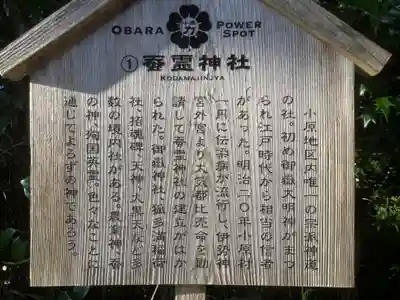 OBARA 力 POWER SPOT
①蚕霊神社
KODAMAJINJYA
小原地区内唯一の宗派神道
の社。初め御嶽大明神がまつ
られ江戸時代から相当の信者
があった。明治二〇年小原村
一円に伝染病が流行し、伊勢神
宮外宮より大気都比売命を勧
請して蚕霊神社の建立がはか
られた。御嶽神社、狐多満稲荷
社、招魂碑、天神、大黒天など多
数の境内社がある。農業神、蚕
の神、殉国英霊。色々なことに
通じてよろずの神であろう。